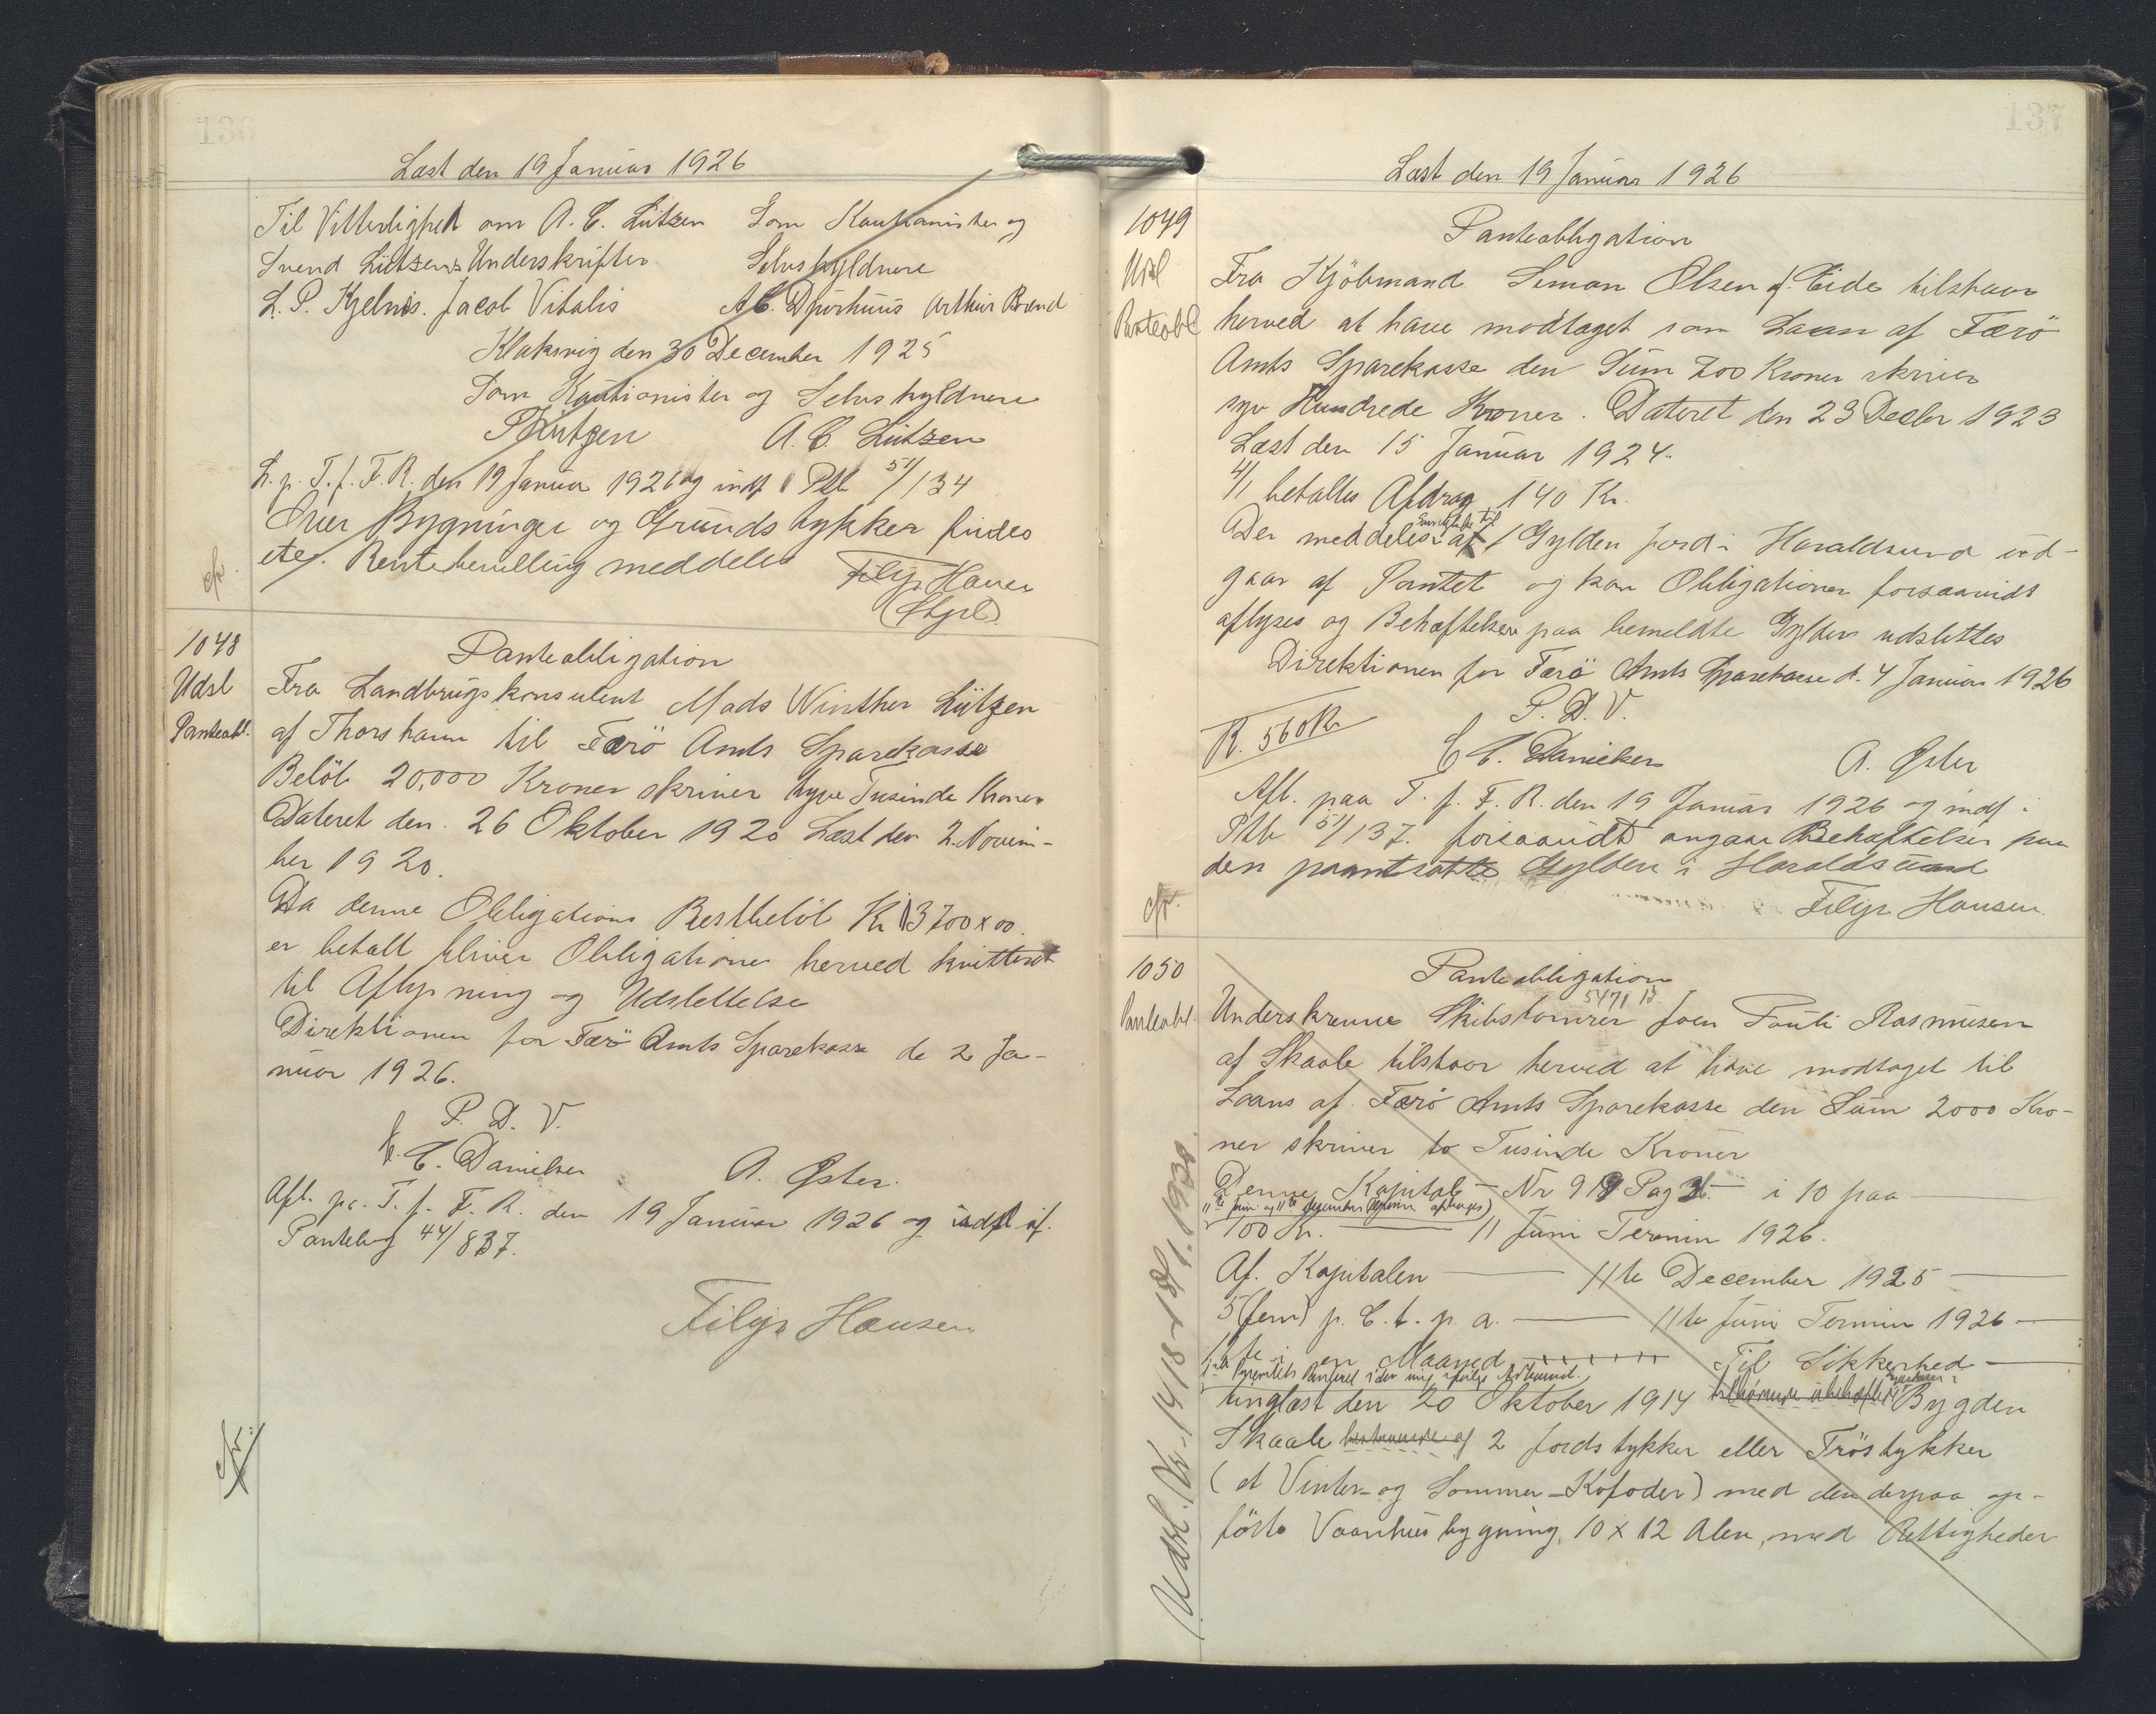 136
Læst den 19 Januar 1926
Til Vitterlighed om A. C. Lützen Som Kautionister og
Svend Lützens Underskrifter Selvskyldnere
L. P. Kjelnæs. Jacob Vitalis A C. Djurhuus Arthur Brend
Klaksvig den 30 December 1925
Som Kautionister og Selvskyldnere
Lützen A. C. Lützen
L. p. T. f. F. R. den 19 Januar 1926 og indf i Ptb 51/134
Over Bygninger og Grundstykker findes
etc. Rentebevilling meddeles Filip Hansen
cfr.
1048
Udsl
Panteobl.
Panteobligation
Fra Landbrugskonsulent Mads Winther Lützen
af Thorshavn til Færö Amts Sparekasse
Belöb 20,000 Kroner skriver tyve Tusinde Kroner
Dateret den. 26 Oktober 1920 Læst den 2. Novem-
ber 1920.
Da denne Obligations Restbelöb Kr 13700 x 00.
er betalt bliver Obligationen herved kvitteret
til Aflysning og Udslettelse
Direktionen for Færö Amts Sparekasse d. 2 Ja-
nuar 1926.
P. D. V.
C. C. Danielsen A. Øster.
Afl. pa. T. f. F. R. den 19 Januar 1926 og indf if.
Pantebog 44/837.
Filip Hansen
cfr.
137
Læst den 19 Januar 1926
1049
Udsl
Panteobl
Panteobligation
Fra Kjöbmand Simon Olsen af Eide tilstaar
herved at have modtaget som Laan af Færö
Amts Sparekasse den Sum 700 Kroner skriver
syv Hundrede Kroner. Dateret den 23 Decbr 1923
Læst den 15 Januar 1924.
4/1 betaltes Afdrag 140 Kr.
Der meddeles Samtykke til at 1 Gylden Jord i Haraldsund ud-
gaar af Pantet og kan Obligationen forsaavidt
aflyses og Behæftelsen paa bemeldte Gylden udslettes
Direktionen for Færö Amts Sparekasse d. 4 Januar 1926
P. D. V.
R. 560 Kr
C C. Danielsen A. Øster
Afl. paa T. f. F. R. den 19 Januar 1926 og indf i
Ptb 51/137. forsaavidt angaar Behæftelsen paa
den pantsatte Gylden i Haraldsund
cfr. Filip Hansen
1050
Panteobl.
Panteobligation
5471 13
Underskrevne Skibstömrer Joen Pauli Rasmusen
af Skaale tilstaar herved at have modtaget til
Laans af Færö Amts Sparekasse den Sum 2000 Kro-
ner skriver to Tusinde Kroner
Denne Kapital — Nr 919 Pag 36. — i 10 paa
11te juni og 11te december Termin
100 Kr. — 11 Juni Termin 1926.
Af. Kapitalen — 11te December 1925 —
5 (fem) p. C. t. p. a. — 11te Juni Termin 1926 —
11te i en Maaned Til Sikkerhed —
1ste Prioritets Panteret i den mig ifölge Adkomst.
tinglæst den 20 Oktober 1914 tilhörende ubehæftede Ejendom i Bygden
Skaale bestaaende af 2 Jordstykker eller Tröstykker
(et Vinter- og Sommer-Kofoder) med den derpaa op-
förte Vaanhusbygning, 10 x 12 Alen, med Rettigheder
Udsl. Nr. 1418 1930.